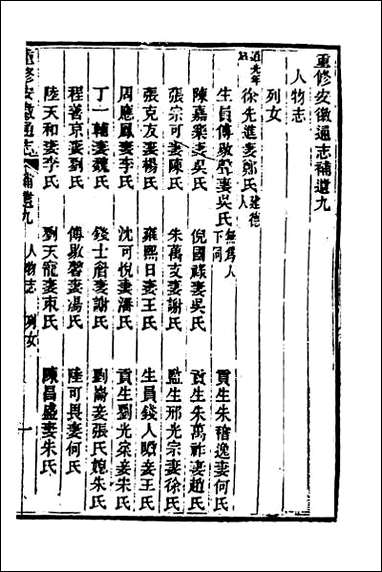 重修安徽通志補遺九
人物志
列女
道光年 徐先進妻鄭氏 建德人
生員傅敭聲妻吳氏 無為人下同 貢生朱稽逸妻何氏
陳嘉樂妻吳氏 倪國禄妻吳氏 貢生朱萬祚妻趙氏
張宗可妻陳氏 朱萬支妻謝氏 監生邢光宗妻徐氏
張克友妻楊氏 雍熙日妻王氏 生員錢人瞻妻王氏
周應鳳妻李氏 沈可悅妻潘氏 貢生劉光梁妻朱氏
丁一輔妻魏氏 錢士翕妻謝氏 劉崙妻張氏媳朱氏
程善京妻劉氏 傅敭馨妻馮氏 陸可畏妻何氏
陸天和妻李氏 劉天龍妻東氏 陳昌盛妻朱氏
重修安徽通志 補遺九 人物志 列女 一